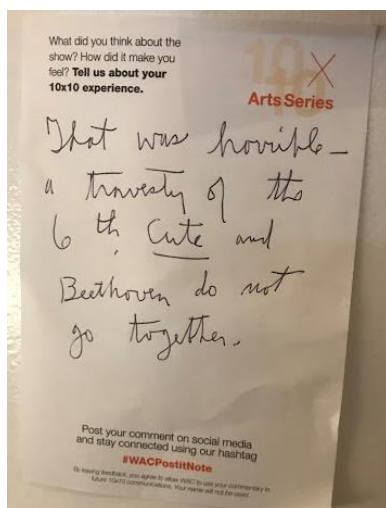 What did you think about the
show? How did it make you
feel? Tell us about your
10x10 experience.
10x
10
Arts Series
That was horrible –
a travesty of the
6th. Cute and
Beethoven do not
go together.
Post your comment on social media
and stay connected using our hashtag
#WACPostitNote
By leaving feedback, you agree to allow WAC to use your commentary in
future 10x10 communications. Your name will not be used.